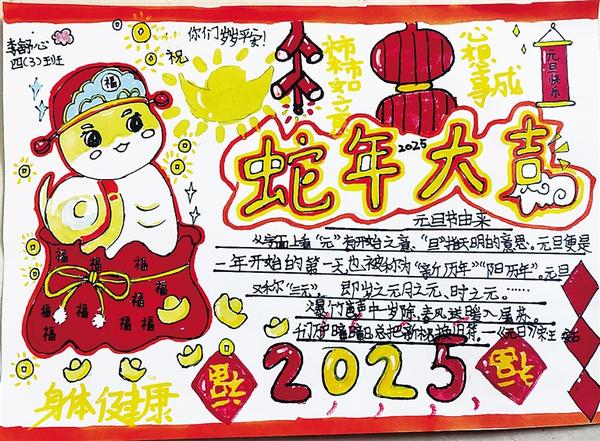 四(3)班
祝
你们岁岁平安!
柿柿如意
心想事成
元旦快乐
福
蛇年大吉
2025
元旦节由来
从字面上看"元"有开始之意、"旦"指天明的意思。元旦便是
一年开始的第一天,也被称为"新历年""阳历年"。元旦
又称"三元" 即岁之元月之元、时之元。……
爆竹声中一岁除,春风送暖入屠苏。
千门 曈曈日总把新桃换旧符。—《元旦》宋王
福 福 福 福 福 福 福 福
身体健康
福
2,0,2,5,
福